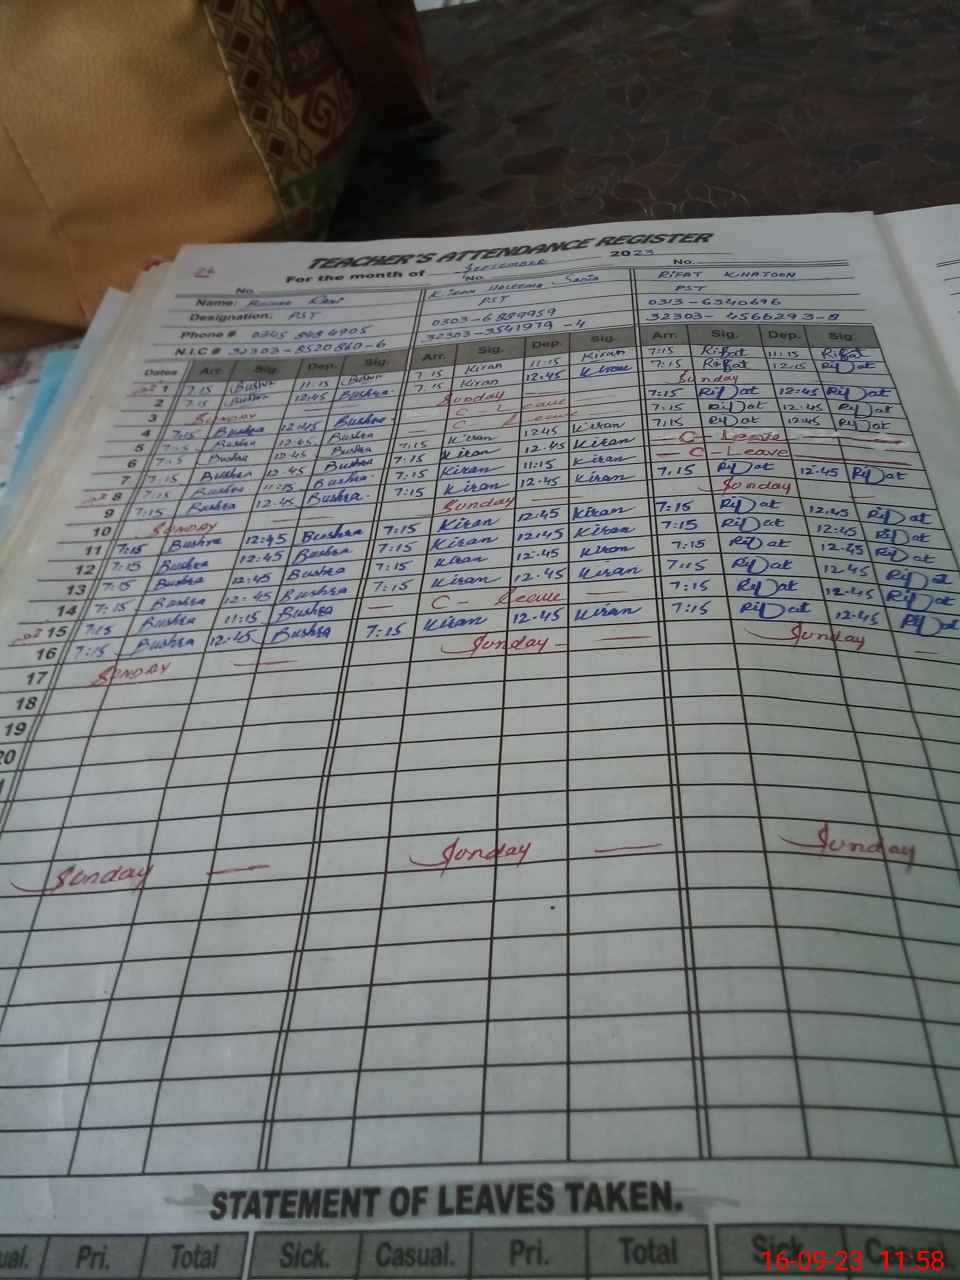 TEACHER'S ATTENDANCE REGISTER
26
For the month of September 2023
No. No. No.
Name: Kiran Haleema Sadia RIFAT KHATOON
Designation. PST PST PST
Phone # 0303-6889959 0313-6340696
N.I.C # 32303-8520860-6 32303-3541979-4 32303-4566293-8
Dates Arr. Sig. Dep. Sig. Arr. Sig. Dep. Sig. Arr. Sig. Dep. Sig.
1 7:15 Bushra 11:15 Bushra 7:15 Kiran 11:15 Kiran 7:15 Rifat 11:15 Rifat
2 7:15 Bushra 12:45 Bushra 7:15 Kiran 12:45 Kiran 7:15 Rifat 12:15 Rifat
3 SUNDAY — Sunday — Sunday
4 7:15 Bushra 12:45 Bushra — C - Leave — 7:15 Rifat 12:45 Rifat
5 7:15 Bushra 12:45 Bushra — C Leave — 7:15 Rifat 12:45 Rifat
6 7:15 Bushra 12:45 Bushra 7:15 Kiran 12:45 Kiran 7:15 Rifat 12:45 Rifat
7 7:15 Bushra 12:45 Bushra 7:15 Kiran 12:45 Kiran — C - Leave —
8 7:15 Bushra 11:15 Bushra 7:15 Kiran 11:15 Kiran — C - Leave —
9 7:15 Bushra 12:45 Bushra 7:15 Kiran 12:45 Kiran 7:15 Rifat 12:45 Rifat
10 SUNDAY — Sunday — Sunday —
11 7:15 Bushra 12:45 Bushra 7:15 Kiran 12:45 Kiran 7:15 Rifat 12:45 Rifat
12 7:15 Bushra 12:45 Bushra 7:15 Kiran 12:45 Kiran 7:15 Rifat 12:45 Rifat
13 7:15 Bushra 12:45 Bushra 7:15 Kiran 12:45 Kiran 7:15 Rifat 12:45 Rifat
14 7:15 Bushra 12:45 Bushra 7:15 Kiran 12:45 Kiran 7:15 Rifat 12:45 Rifat
15 7:15 Bushra 11:15 Bushra — C - Leave — 7:15 Rifat 12:45 Rifat
16 7:15 Bushra 12:45 Bushra 7:15 Kiran 12:45 Kiran 7:15 Rifat 12:45 Rifat
17 SUNDAY — Sunday — Sunday —
18
19
20
Sunday — Sunday — Sunday
STATEMENT OF LEAVES TAKEN.
Pri. Total Sick. Casual. Pri. Total Sick
16-09-23 11:58